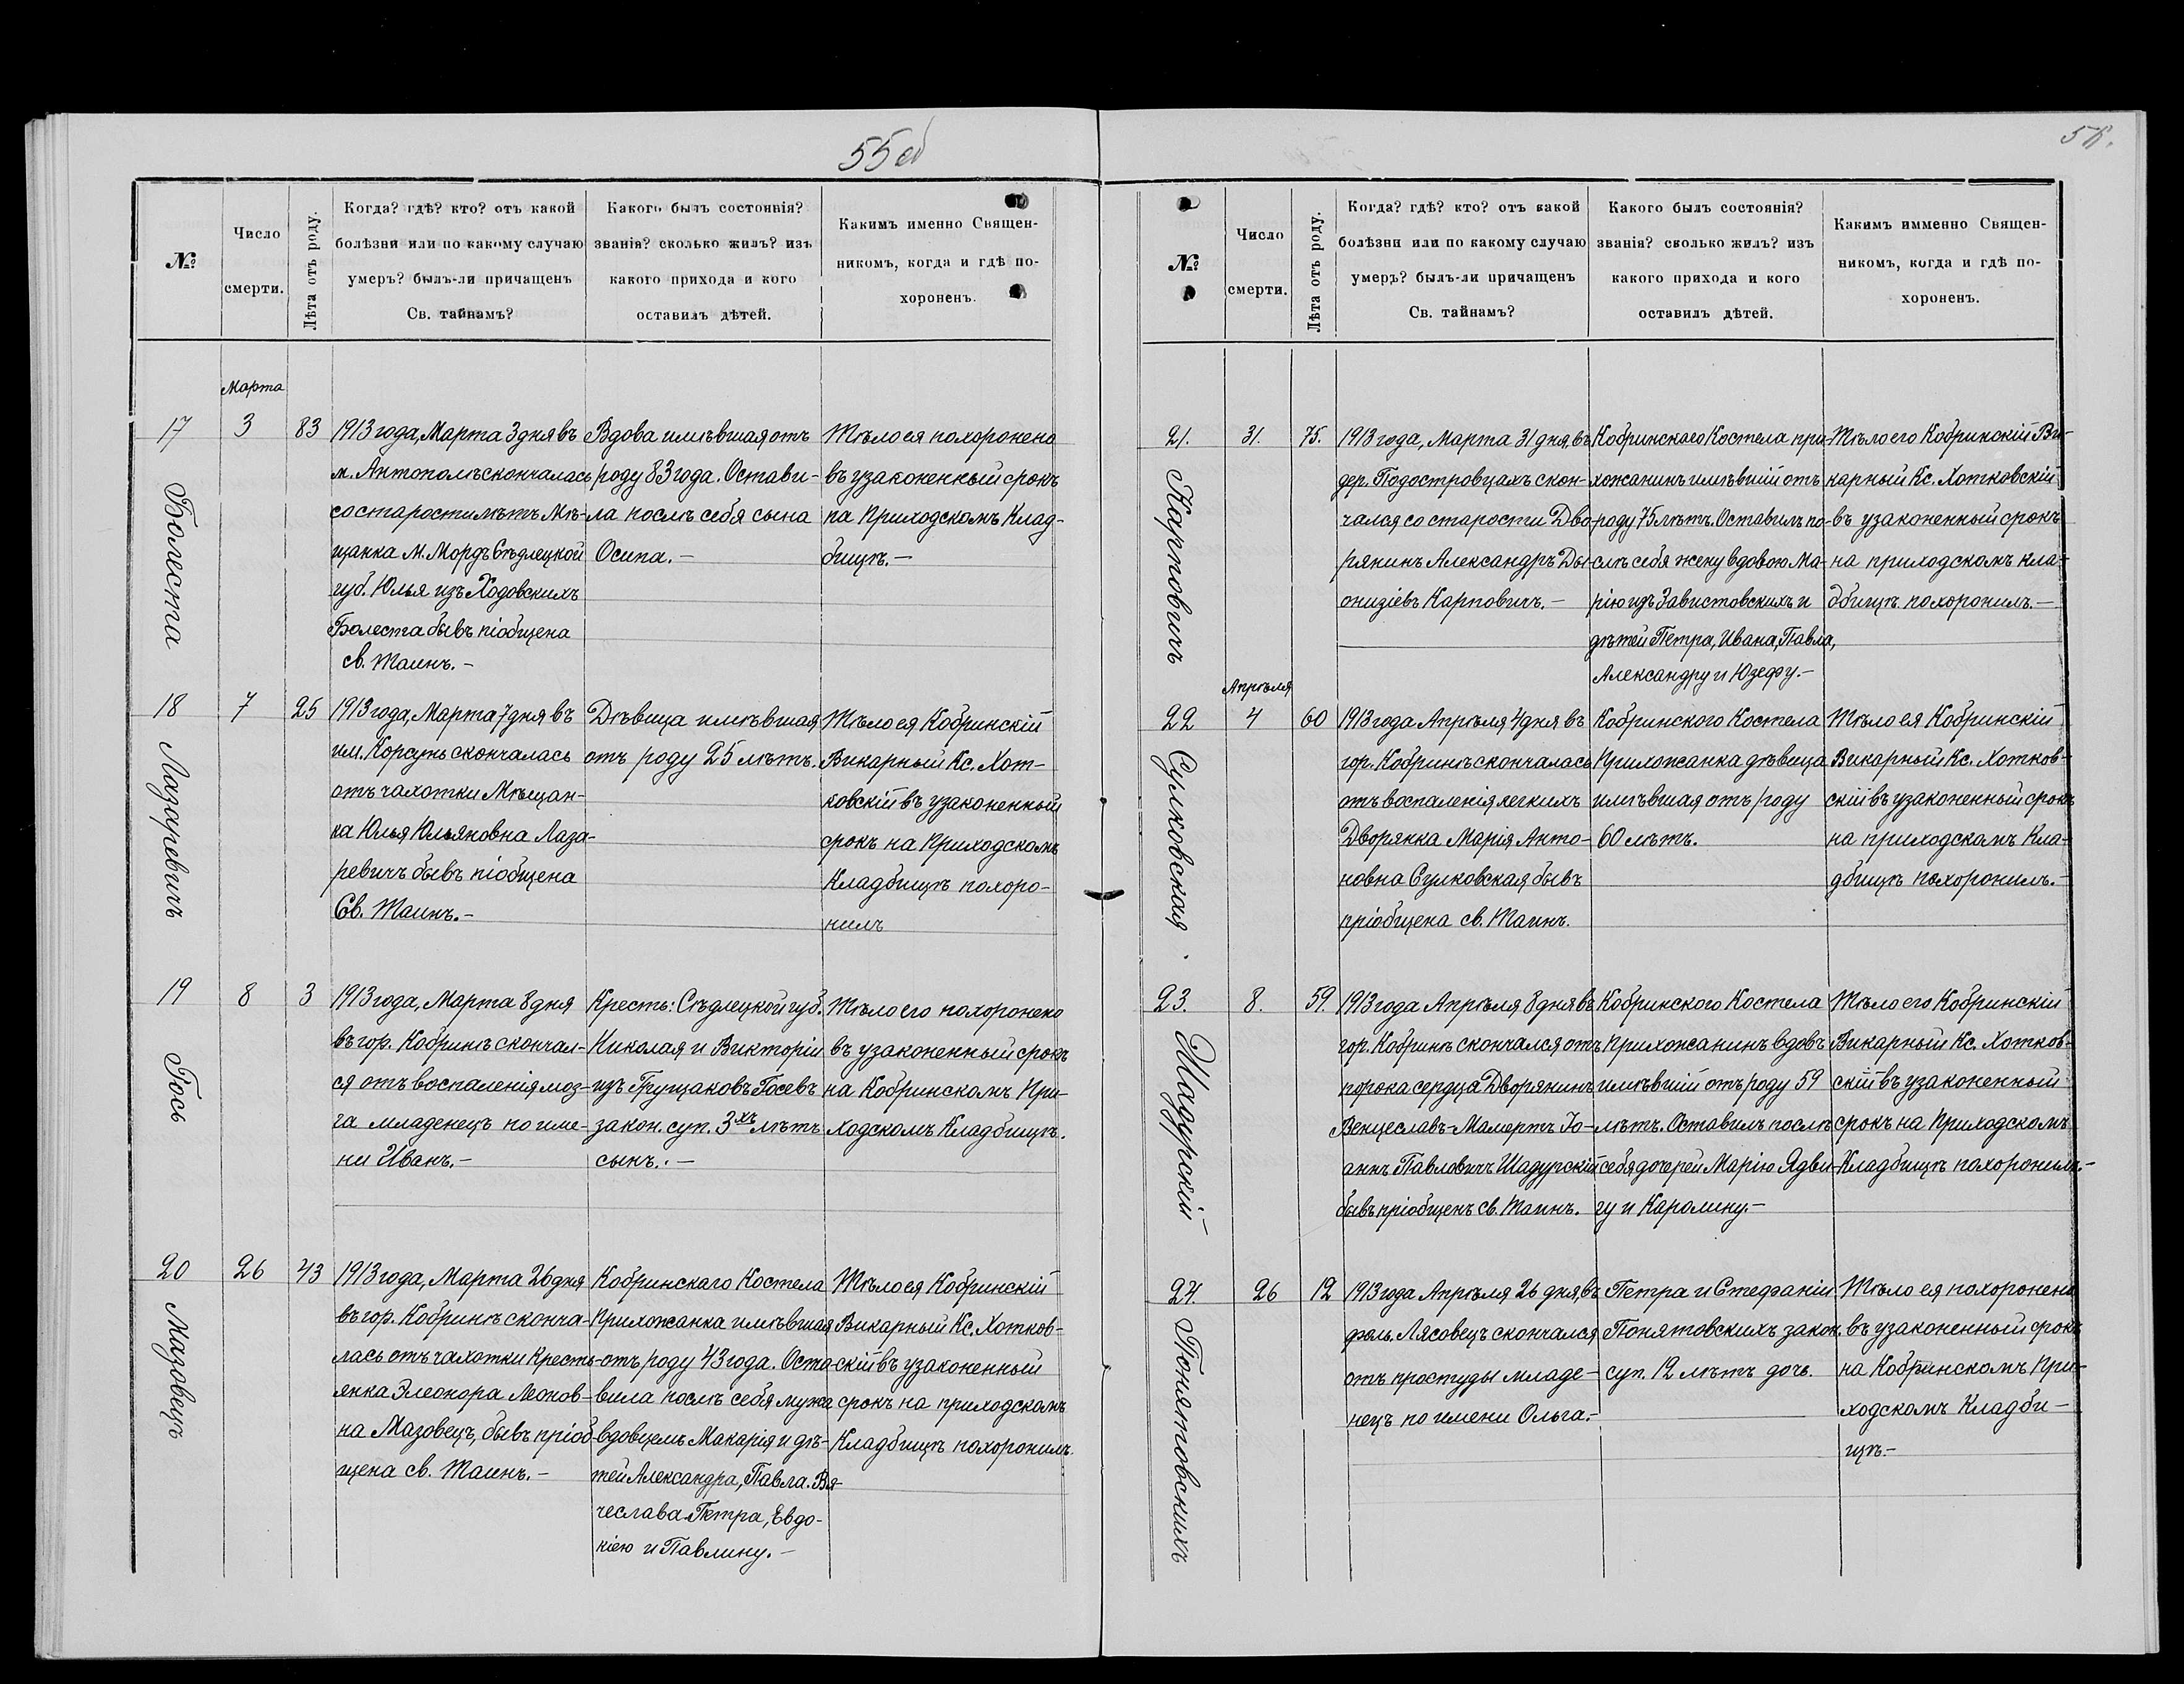 55об
№
Число
смерти.
Лѣта отъ роду.
Когда? гдѣ? кто? отъ какой
болѣзни или по какому случаю
умеръ? былъ-ли причащенъ
Св. тайнамъ?
Какого былъ состоянія?
званія? сколько жилъ? изъ
какого прихода и кого
оставилъ дѣтей.
Каким​ъ именно Священ-
никомъ, когда и гдѣ по-
хороненъ.
Марта
17
3
83
Болеста
1913 года, Марта 3 дня въ
м. Антополѣ скончалась
со старости лѣтъ Мѣ-
щанка м. Мордъ Сѣдлецкой
губ. Юлья изъ Ходовскихъ
Болеста бывъ піобщена
св. Таинъ.-
Вдова имѣвшая отъ
роду 83 года. Остави-
ла послѣ себя сына
Осипа.-
Тѣло ея похоронено
въ узаконенный срокъ
на Приходскомъ Клад-
бищѣ.-
18
7
25
Лазаревичъ
1913 года, Марта 7 дня въ
им. Корсунь скончалась
отъ чахотки Мѣщан-
ка Юлья Юльяновна Лаза-
ревичъ бывъ піобщена
Св. Таинъ.-
Дѣвица имѣвшая
отъ роду 25 лѣтъ.
Тѣло ея Кобринскій
Викарный Кс. Хот-
ковскій въ узаконенный
срокъ на Приходскомъ
Кладбищѣ похоро-
нилъ
19
8
3
Гось
1913 года, Марта 8 дня
въ гор. Кобринѣ скончал-
ся отъ воспаленія моз-
га младенецъ по име-
ни Иванъ.-
Кресть: Сѣдлецкой губ.
Николая и Викторіи
изъ Грущаковъ Госевъ
закон. суп. 3хъ лѣтъ
сынъ.-
Тѣло его похоронено
въ узаконенный срокъ
на Кобринскомъ При-
ходскомъ Кладбищѣ.
20
26
43
Мазовецъ
1913 года, Марта 26 дня
въ гор. Кобринѣ сконча-
лась отъ чахотки Кресть-
янка Элеонора Леонов-
на Мазовецъ, бывъ пріоб-
щена св. Таинъ.-
Кобринскаго Костела
Прихожанка имѣвшая
отъ роду 43 года. Оста-
вила послѣ себя мужа
вдовцемъ Макарія и дѣ-
тей Александра, Павла. Вя-
чеслава Петра, Евдо-
кію и Павлину.-
Тѣло ея Кобринскій
Викарный Кс. Хотков-
скій въ узаконенный
срокъ на приходскомъ
Кладбищѣ похоронилъ.
№
Число
смерти.
Лѣта отъ роду.
Когда? гдѣ? кто? отъ какой
болѣзни или по какому случаю
умеръ? былъ-ли причащенъ
Св. тайнамъ?
Какого былъ состоянія?
званія? сколько жилъ? изъ
какого прихода и кого
оставилъ дѣтей.
Какимъ имменно Священ-
никомъ, когда и гдѣ по-
хороненъ.
21.
31.
75.
Карповичъ
1913 года, Марта 31 дня, въ
дер. Подостровцахъ скон-
чался со старости Дво-
рянинъ Александръ Ды-
онизіевъ Карповичъ.-
Кобринскаго Костела при-
хожанинъ имѣвшій отъ
роду 75 лѣтъ. Оставилъ по-
слѣ себя жену вдовою Ма-
рію изъ Завистовскихъ и
дѣтей Петра, Ивана, Павла,
Александру и Юзефу.-
Тѣло его Кобринскій Ви-
карный Кс. Хотковскій
въ узаконенный срокъ
на приходскомъ кла-
дбищѣ похоронилъ.-
Апрѣля
22
4
60
Сулковская.
1913 года Апрѣля 4 дня въ
гор. Кобринѣ скончалась
отъ воспаленія легкихъ
Дворянка Марія Анто-
новна Сулковская бывъ
пріобщена св. Таинъ.
Кобринского Костела
Прихожанка дѣвица
имѣвшая отъ роду
60 лѣтъ.
Тѣло ея Кобринскій
Викарный Кс. Хотков-
скій въ узаконенный срокъ
на приходскомъ Кла-
дбищѣ похоронилъ.-
23.
8.
59.
Шадурскій
1913 года Апрѣля 8 дня въ
гор. Кобринѣ скончался отъ
порока сердца Дворянинъ
Венцеславъ-Мамертъ Іо-
аннъ Павловичъ Шадурскій
бывъ пріобщенъ св. Таинъ.
Кобринского Костела
Прихожанинъ вдовъ
имѣвшій отъ роду 59
лѣтъ. Оставилъ послѣ
себя дочерей Марію Ядви-
гу и Каролину.-
Тѣло его Кобринскій
Викарный Кс. Хотков-
скій въ узаконенный
срокъ на Приходскомъ
Кладбищѣ похоронилъ.-
24.
26
12
Понятовскихъ
1913 года Апрѣля 26 дня, въ
фоль. Лясовецъ скончался
отъ простуды младе-
нецъ по имени Ольга.-
Петра и Стефаніи
Понятовскихъ закон.
суп. 12 лѣтъ дочь.
Тѣло ея похоронено
въ узаконенный срокъ
на Кобринскомъ При-
ходскомъ Кладби-
щѣ.-